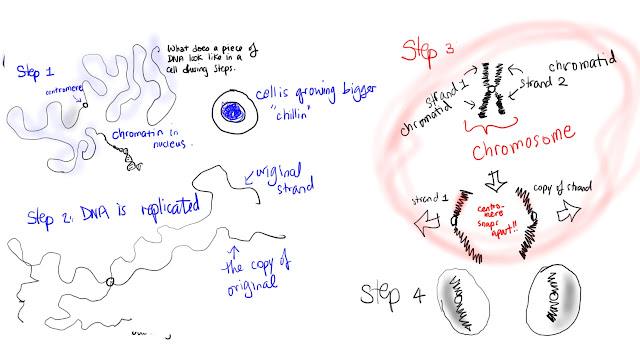 What does a piece of
DNA look like in a
cell during steps.
Step 1
centromere
cell is growing bigger
"chillin"
chromatin in
nucleus.
original
strand
Step 2: DNA is replicated
the copy of
original
Step 3
chromatid
strand 1
strand 2
chromatid
Chromosome
strand 1
copy of strand
centro-
mere
snaps
apart!!
Step 4